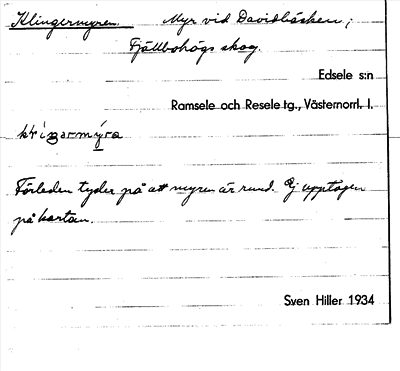 Klingermyren. Myr vid Davidbäcken;
Fjällbohögs skog.
Edsele s:n
Ramsele och Resele tg., Västernorrl. l.
Förleden tyder på att myren är rund. Ej upptagen
på kartan.
Sven Hiller 1934